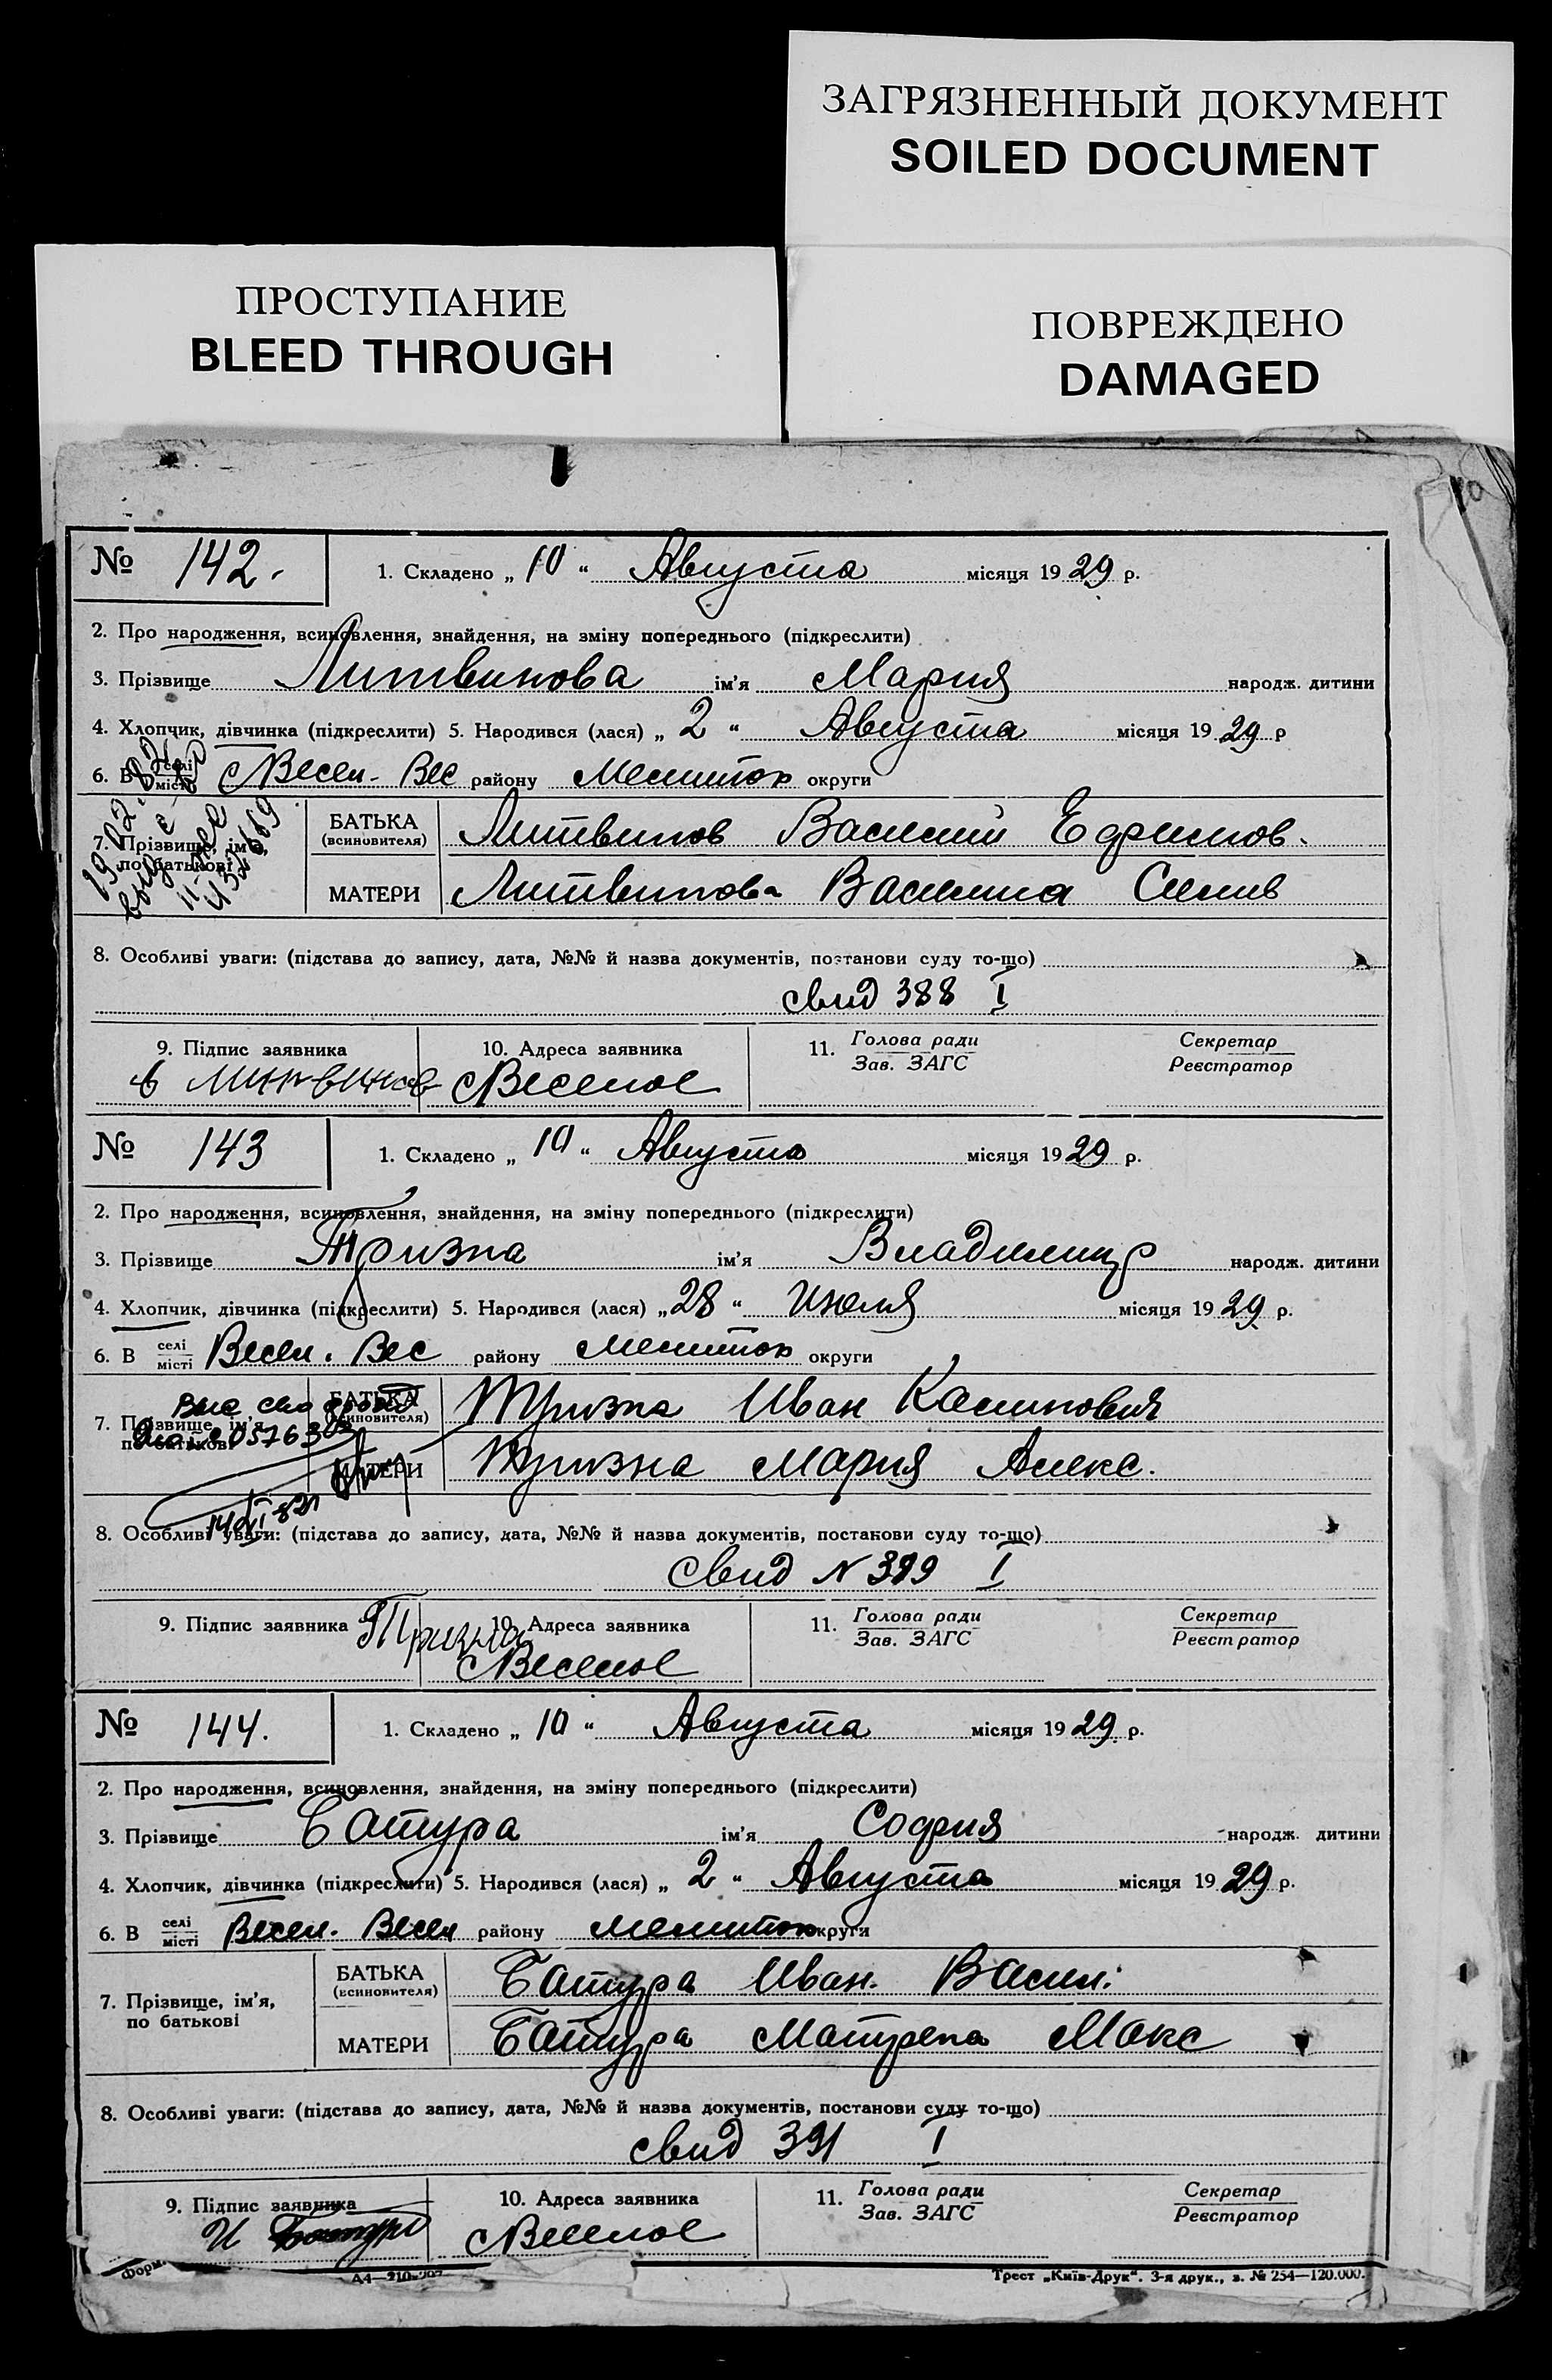 ЗАГРЯЗНЕННЫЙ ДОКУМЕНТ
SOILED DOCUMENT
ПРОСТУПАНИЕ
BLEED THROUGH
ПОВРЕЖДЕНО
DAMAGED
№ 142. 1. Складено „ 10 “ Августа місяця 19 29 р.
2. Про народження, всиновлення, знайдення, на зміну попереднього (підкреслити)
3. Прізвище Литвинова ім'я Мария народж. дитини
4. Хлопчик, дівчинка (підкреслити) 5. Народився (лася) „ 2 “ Августа місяця 19 29 р
6. В селі місті с Весел. Вес району Мелитоп округи
7. Прізвище, ім'я, по батькові
БАТЬКА (всиновителя) Литвинов Василий Ефимов.
МАТЕРИ Литвинова Василиса
8. Особливі уваги: (підстава до запису, дата, №№ й назва документів, постанови суду то-що)
свид 388 I
9. Підпис заявника 10. Адреса заявника 11. Голова ради Секретар
Зав. ЗАГС Реєстратор
в Литвинов с Веселое
№ 143 1. Складено „ 10 “ Августа місяця 19 29 р.
2. Про народження, всиновлення, знайдення, на зміну попереднього (підкреслити)
3. Прізвище Тризна ім'я Владимир народж. дитини
4. Хлопчик, дівчинка (підкреслити) 5. Народився (лася) „ 28 “ Июля місяця 19 29 р.
6. В селі місті Весел. Вес району Мелитоп округи
7. Прізвище, ім'я, по батькові
БАТЬКА (всиновителя) Тризна Иван Калинович
МАТЕРИ Тризна Мария Алекс.
8. Особливі уваги: (підстава до запису, дата, №№ й назва документів, постанови суду то-що)
Свид N 389 I
9. Підпис заявника Тризна 10. Адреса заявника 11. Голова ради Секретар
Зав. ЗАГС Реєстратор
с Веселое
№ 144. 1. Складено „ 10 “ Августа місяця 19 29 р.
2. Про народження, всиновлення, знайдення, на зміну попереднього (підкреслити)
3. Прізвище Батура ім'я София народж. дитини
4. Хлопчик, дівчинка (підкреслити) 5. Народився (лася) „ 2 “ Августа місяця 19 29 р.
6. В селі місті Весел. Весел району Мелитоп округи
7. Прізвище, ім'я, по батькові
БАТЬКА (всиновителя) Батура Иван. Васил.
МАТЕРИ Батура Матрена Макс
8. Особливі уваги: (підстава до запису, дата, №№ й назва документів, постанови суду то-що)
свид 391 I
9. Підпис заявника 10. Адреса заявника 11. Голова ради Секретар
Зав. ЗАГС Реєстратор
И Батура с Веселое
Форм. А4—210-297 Трест „Київ-Друк“. 3-я друк., з. № 254—120.000.